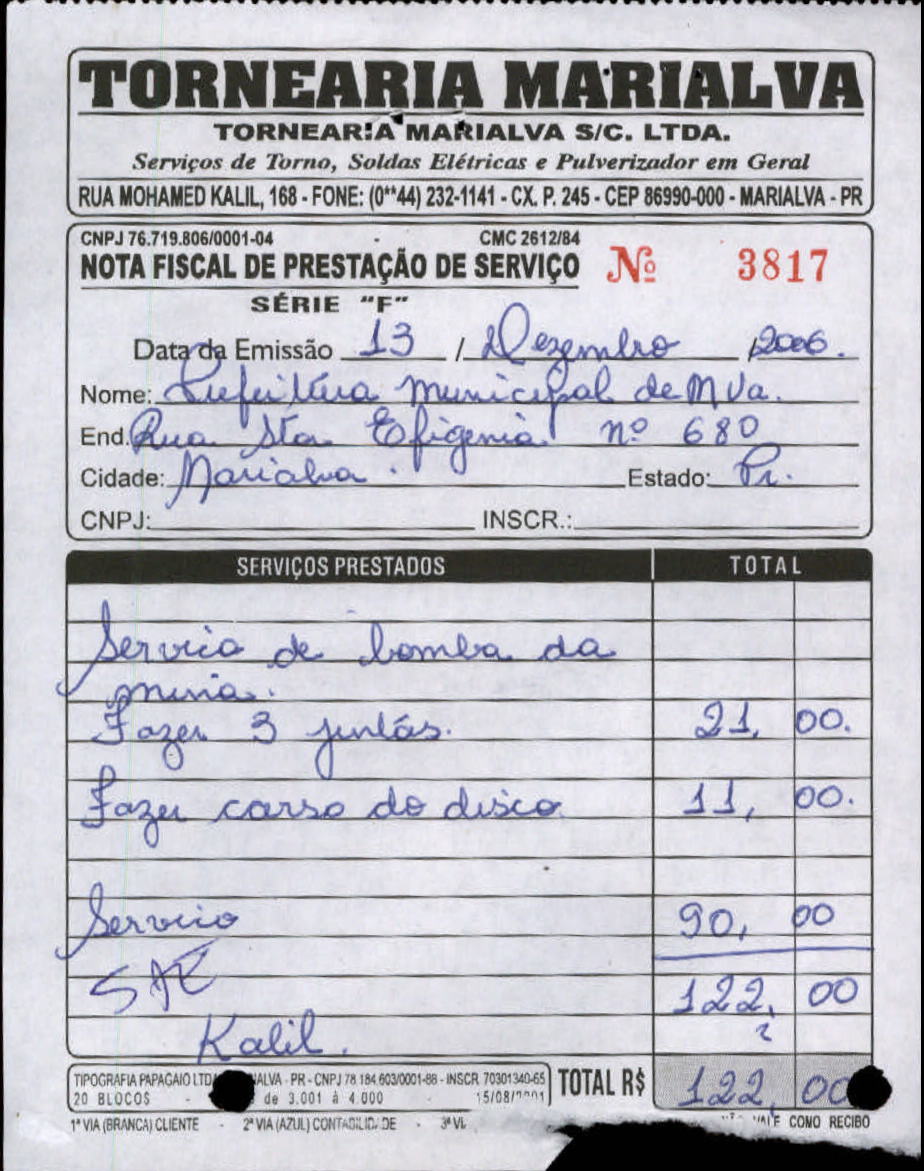 TORNEARIA MARIALVA
TORNEARIA MARIALVA S/C. LTDA.
Serviços de Torno, Soldas Elétricas e Pulverizador em Geral
RUA MOHAMED KALIL, 168 - FONE: (0**44) 232-1141 - CX. P. 245 - CEP 86990-000 - MARIALVA - PR
CNPJ 76.719.806/0001-04 CMC 2612/84
NOTA FISCAL DE PRESTAÇÃO DE SERVIÇO Nº 3817
SÉRIE "F"
Data da Emissão 13 / Dezembro /2006.
Nome: Prefeitura Municipal de MVa.
End. Rua Sta Efigenia nº 680
Cidade: Marialva. Estado: Pr.
CNPJ: INSCR.:
SERVIÇOS PRESTADOS TOTAL
Servico de bomba da
mina.
Fazer 3 juntas. 21, 00.
Fazer do disco 11, 00.
Servico 90, 00
SAE 122, 00
Kalil.
TIPOGRAFIA PAPAGAIO PR - CNPJ 78.184.603/0001-88 - INSCR 70301340-65
20 BLOCOS - de 3.001 à 4.000 15/08/
TOTAL R$ 122, 00
1ª VIA (BRANCA) CLIENTE - 2ª VIA (AZUL) CONTABILIDADE - 3ª COMO RECIBO